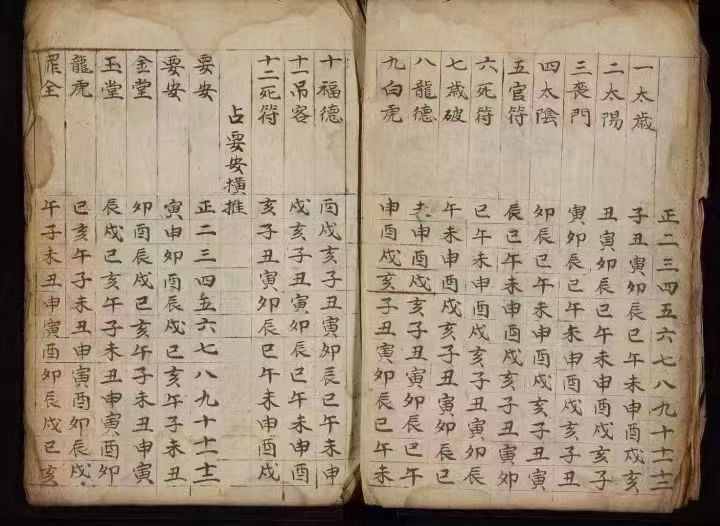 正二三四五六七八九十十一十二
一太歲 子丑寅卯辰巳午未申酉戌亥
二太陽 丑寅卯辰巳午未申酉戌亥子
三喪門 寅卯辰巳午未申酉戌亥子丑
四太陰 卯辰巳午未申酉戌亥子丑寅
五官符 辰巳午未申酉戌亥子丑寅卯
六死符 巳午未申酉戌亥子丑寅卯辰
七歲破 午未申酉戌亥子丑寅卯辰巳
八龍德 未申酉戌亥子丑寅卯辰巳午
九白虎 申酉戌亥子丑寅卯辰巳午未
十福德 酉戌亥子丑寅卯辰巳午未申
十一吊客 戌亥子丑寅卯辰巳午未申酉
十二死符 亥子丑寅卯辰巳午未申酉戌
占要安橫推
要安 正二三四五六七八九十十一十二
要安 寅申卯酉辰戌巳亥午子未丑
金堂 卯酉辰戌巳亥午子未丑申寅
玉堂 辰戌巳亥午子未丑申寅酉卯
龍虎 巳亥午子未丑申寅酉卯辰戌
罪全 午子未丑申寅酉卯辰戌巳亥